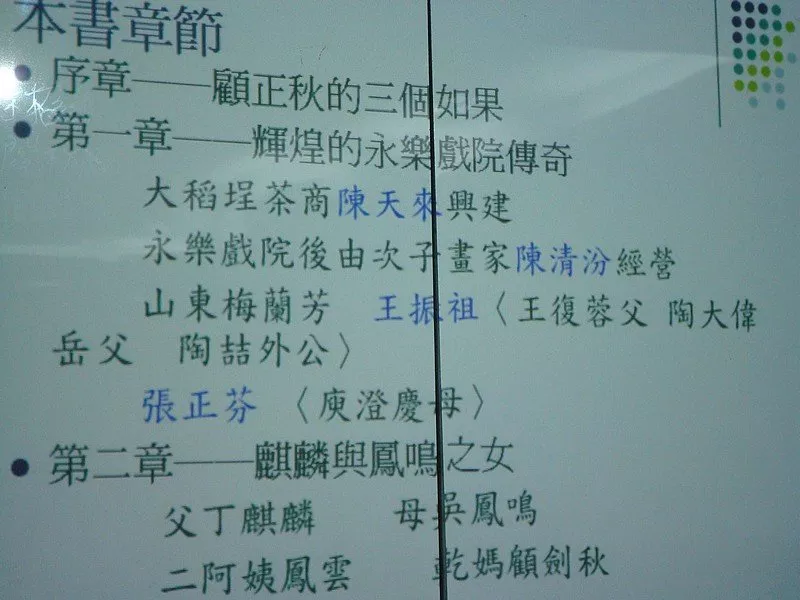 本書章節
序章——顧正秋的三個如果
第一章——輝煌的永樂戲院傳奇
大稻埕茶商陳天來興建
永樂戲院後由次子畫家陳清汾經營
山東梅蘭芳 王振祖〈王復蓉父 陶大偉
岳父 陶喆外公〉
張正芬 〈庾澄慶母〉
第二章——麒麟與鳳鳴之女
父丁麒麟 母吳鳳鳴
二阿姨鳳雲 乾媽顧劍秋